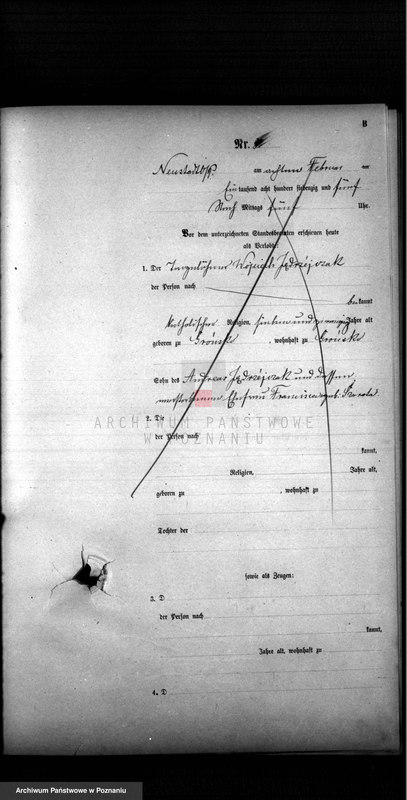 B
Nr.
Neustadt b/P. am achten Februar
Ein tausend acht hundert siebenzig und fünf
Nach Mittags fünf Uhr.
Vor dem unterzeichneten Standesbeamten erschienen heute
als Verlobte:
1. Der Tagelöhner Jędrzejczak
der Person nach
bekannt
katholischer Religion, sieben und zwanzig Jahre alt
geboren zu Grońsko, wohnhaft zu Grońsko
Sohn des Andreas Jędrzejczak und dessen
verstorbenen Ehefrau Francisca geb.
ARCHIWUM PAŃSTWOWE
W POZNANIU
2. Die
der Person nach
kannt,
Religion, Jahre alt,
geboren zu , wohnhaft zu
Tochter der
sowie als Zeugen:
3. D
der Person nach
kannt,
Jahre alt, wohnhaft zu
4. D
Archiwum Państwowe w Poznaniu